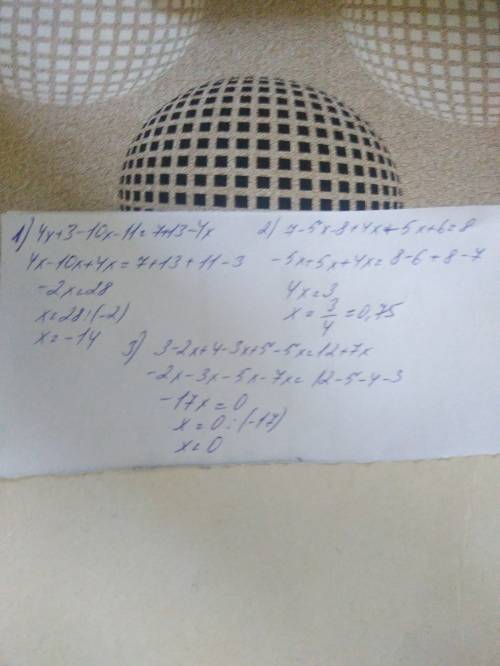 1) 4x+3-10x-11=7+13-4x
4x-10x+4x=7+13+11-3
-2x=28
x=28:(-2)
x=-14
2) 7-5x-8+4x+5x+6=8
-5x+5x+4x=8-6+8-7
4x=3
x=3/4=0,75
3) 3-2x+4-3x+5-5x=12+7x
-2x-3x-5x-7x=12-5-4-3
-17x=0
x=0:(-17)
x=0